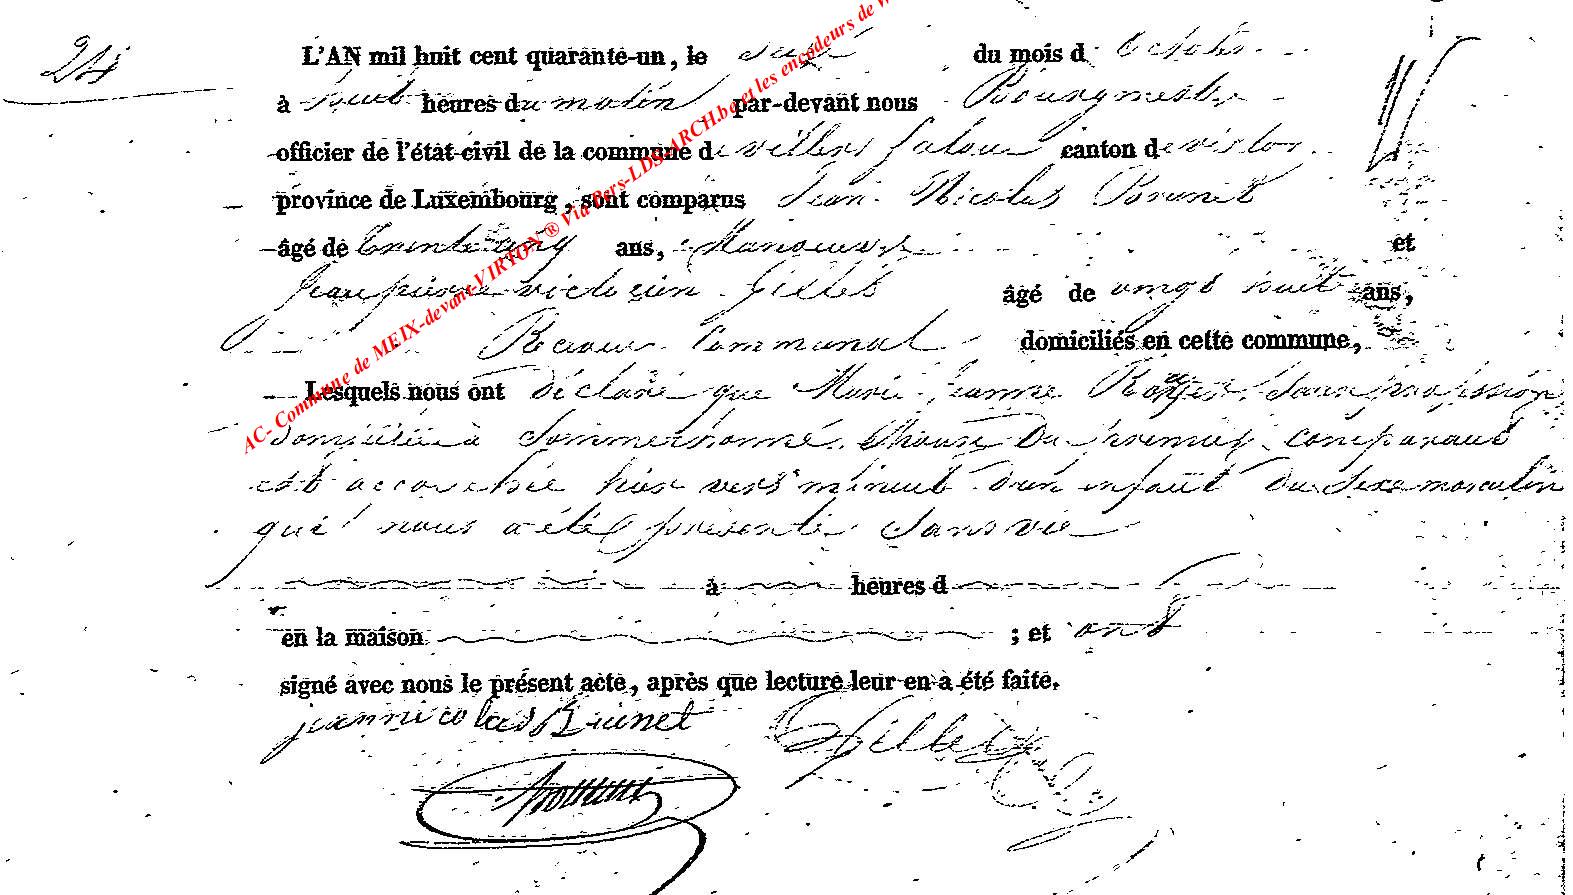 24
L'AN mil huit cent quarante-un, le seize du mois d'octobre
à huit heures du matin par-devant nous Bourgmestre
officier de l'état-civil de la commune de villers la loue canton de virton
province de Luxembourg, sont comparus Jean Nicolas Brunet
âgé de trente cinq ans, Manoeuvre et
Jean pierre victorien Gillet âgé de vingt huit ans,
Receveur Communal domiciliés en cette commune,
Lesquels nous ont déclaré que Marie Jeanne sans profession
domiciliée à Sommethonne Epouse du premier comparant
est accouchée hier vers minuit d'un enfant du sexe masculin
qui nous a été présenté sans vie
à heures d
en la maison ; et ont
signé avec nous le présent acte, après que lecture leur en a été faite.
jean nicolas Brunet Gillet
AC- Commune de MEIX-devant-VIRTON ® Via Pers-LDS-ARCH.be et les encodeurs de